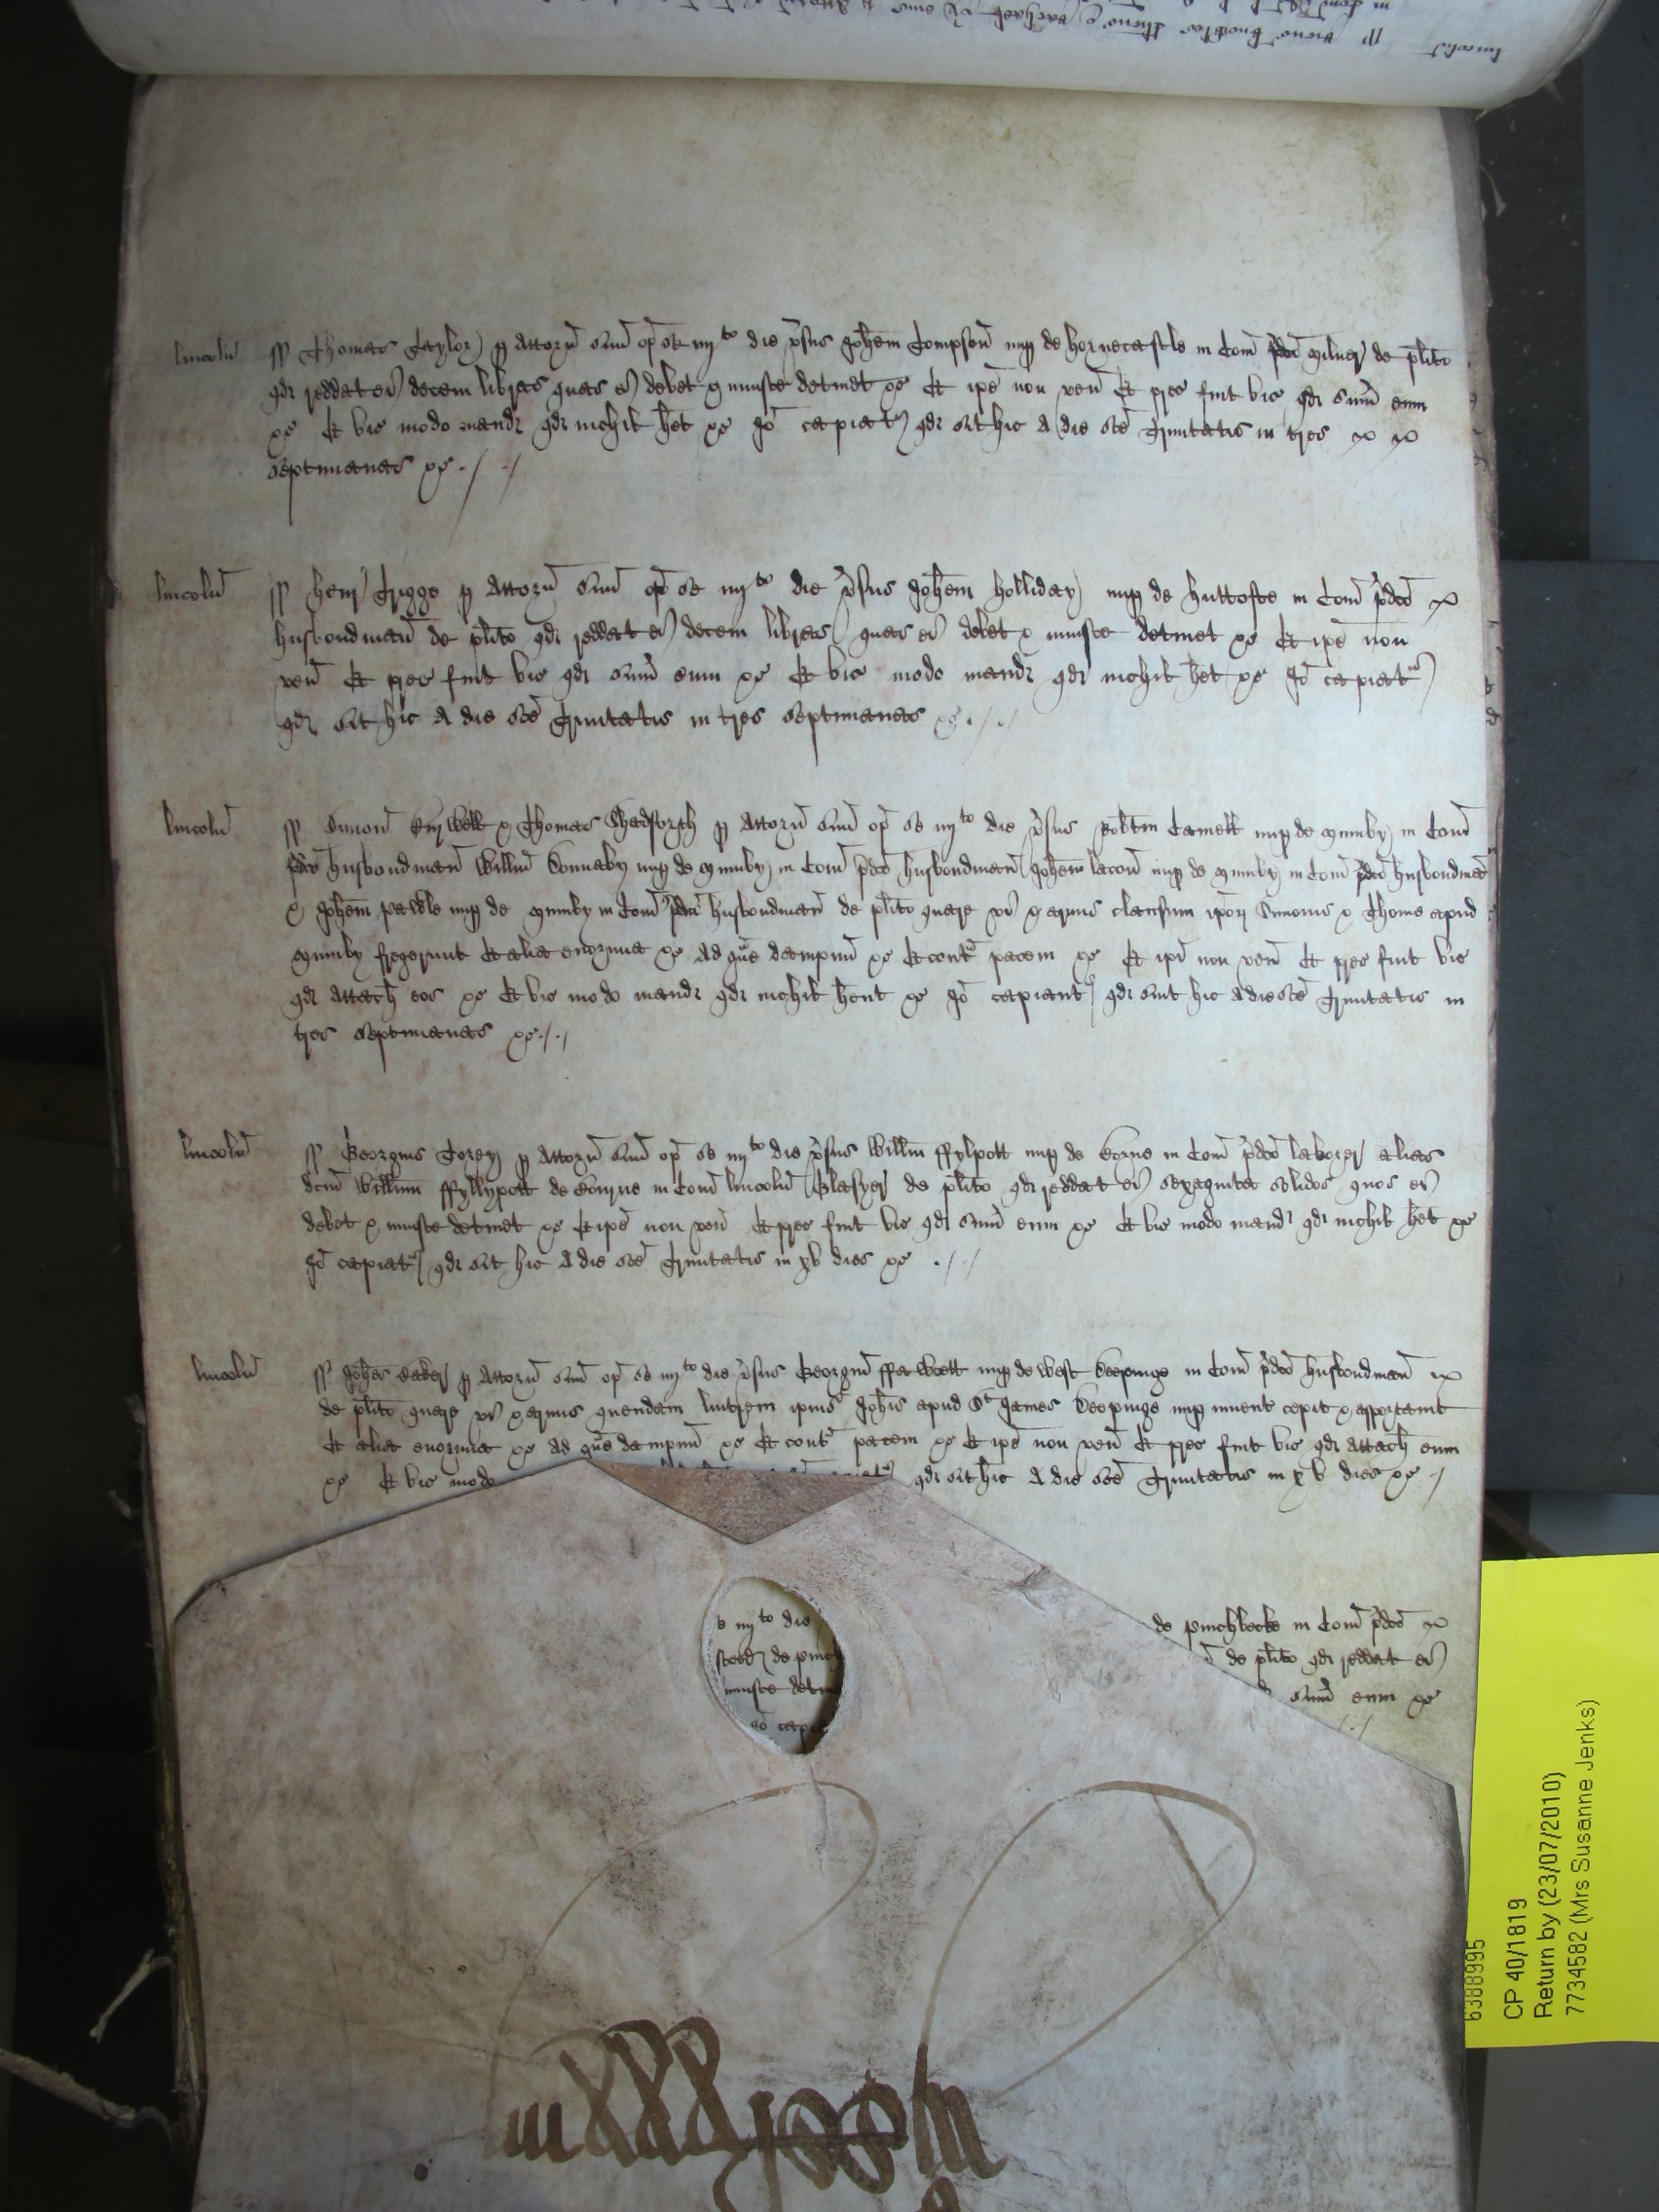 lincoln̄ ss Thomas Taylor p Attorn̄ suū op̄ se iiijto die v̄sus Joh̄em Tompson̄ nup de hornecastle in Com̄ p̄dc̄o de pl̄ito
qd reddat ei decem libras quas ei debet & iniuste detinet &c Et ip̄e non ven̄ Et prec fuit vic qd sum̄ eum
&c Et vic modo mand qd nichil h̄et &c Jō capiatr qd sit hic A die sc̄e Trinitatis in tres
septimanas &c
lincoln̄ ss henr Trigge p Attorn̄ suū op̄ se iiijto die v̄sus Joh̄em Holliday nup de huttofte in Com̄ p̄dc̄o
husbondman̄ de pl̄ito qd reddat ei decem libras quas ei debet & iniuste detinet &c Et ip̄e non
ven̄ Et prec fuit vic qd sum̄ eum &c Et vic modo mand qd nichil h̄et &c Jō capiatr
qd sit hic A die sc̄e Trinitatis in tres septimanas &c
lincoln̄ ss Simon̄ & Thomas Shadforth p Attorn̄ suū op̄ se iiijto die v̄sus Rob̄tm Camell nup de Mumby in Com̄
p̄dc̄o husbondman̄ Willm̄ Bonnaby nup de Mumby in Com̄ p̄dc̄o husbondman̄ Joh̄em lacon̄ nup de Mumby in Com̄ p̄dc̄o husbondman̄
& Joh̄em pawle nup de Mumby in Com̄ p̄dc̄o husbondman̄ de pl̄ito quare vi & armis clausum ip̄or Simonis & Thome apud
Mumby fregerunt Et alia enormia &c Ad gᵃue dampnū &c Et contᵃ pacem &c Et ip̄i non ven̄ Et prec fuit vic
qd attach̄ eos &c Et vic modo mand qd nichil h̄ent &c Jō capiantr qd sint hic A die sc̄e Trinitatis in
tres septimanas &c
lincoln̄ ss Georgius Torey p Attorn̄ suū op̄ se iiijto die v̄sus Willm̄ ffylpott nup de Borne in Com̄ p̄dc̄o laborer alias
dc̄m Willm̄m ffyllypott de Bourne in Com̄ lincoln̄ Glasyer de pl̄ito qd reddat ei sexaginta solidos quos ei
debet & iniuste detinet &c Et ip̄e non ven̄ Et prec fuit vic qd sum̄ eum &c Et vic modo mand qd nichil h̄et &c
Jō capiatr qd sit hic A die sc̄e Trinitatis in xv dies &c
lincoln̄ ss Joh̄es Baker p Attorn̄ suū op̄ se iiijto die v̄sus Georgiū ffawcett nup de West Deepinge in Com̄ p̄dc̄o husbondman̄
de pl̄ito quare vi & armis quendam lintrem ipius Joh̄is apud St James Deepinge nup inuent cepit & asportauit
Et alia enormia &c Ad gᵃue dampnū &c Et contᵃ pacem &c Et ip̄e non ven̄ Et prec fuit vic qd attach̄ eum
&c Et vic modo qd sit hic A die sc̄e Trinitatis in xv dies &c
e iiijto die de pinchbecke in Com̄ p̄dc̄o
de pinc de pl̄ito qd reddat ei
iniuste detin sum̄ eum &c
Jō capia
6388995
CP 40/1819
Return by (23/07/2010)
7734582 (Mrs Susanne Jenks)